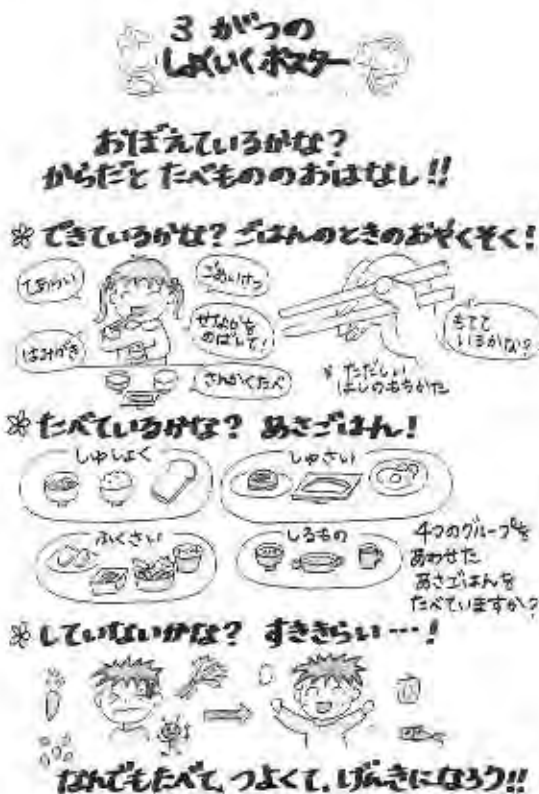 3 がつの
しょくいくポスター
おぼえているかな?
からだと たべもののおはなし!!
できているかな? ごはんのときのおやくそく!
てあらい
ごあいさつ
せなかを
のばして!
はみがき
さんかくたべ
もてて
いるかな?
ただしい
はしのもちかた
たべているかな? あさごはん!
しゅしょく
しゅさい
ふくさい
しるもの
4つのグループを
あわせた
あさごはんを
たべていますか?
していないかな? すききらい…!
なんでもたべて、つよくて、げんきになろう!!